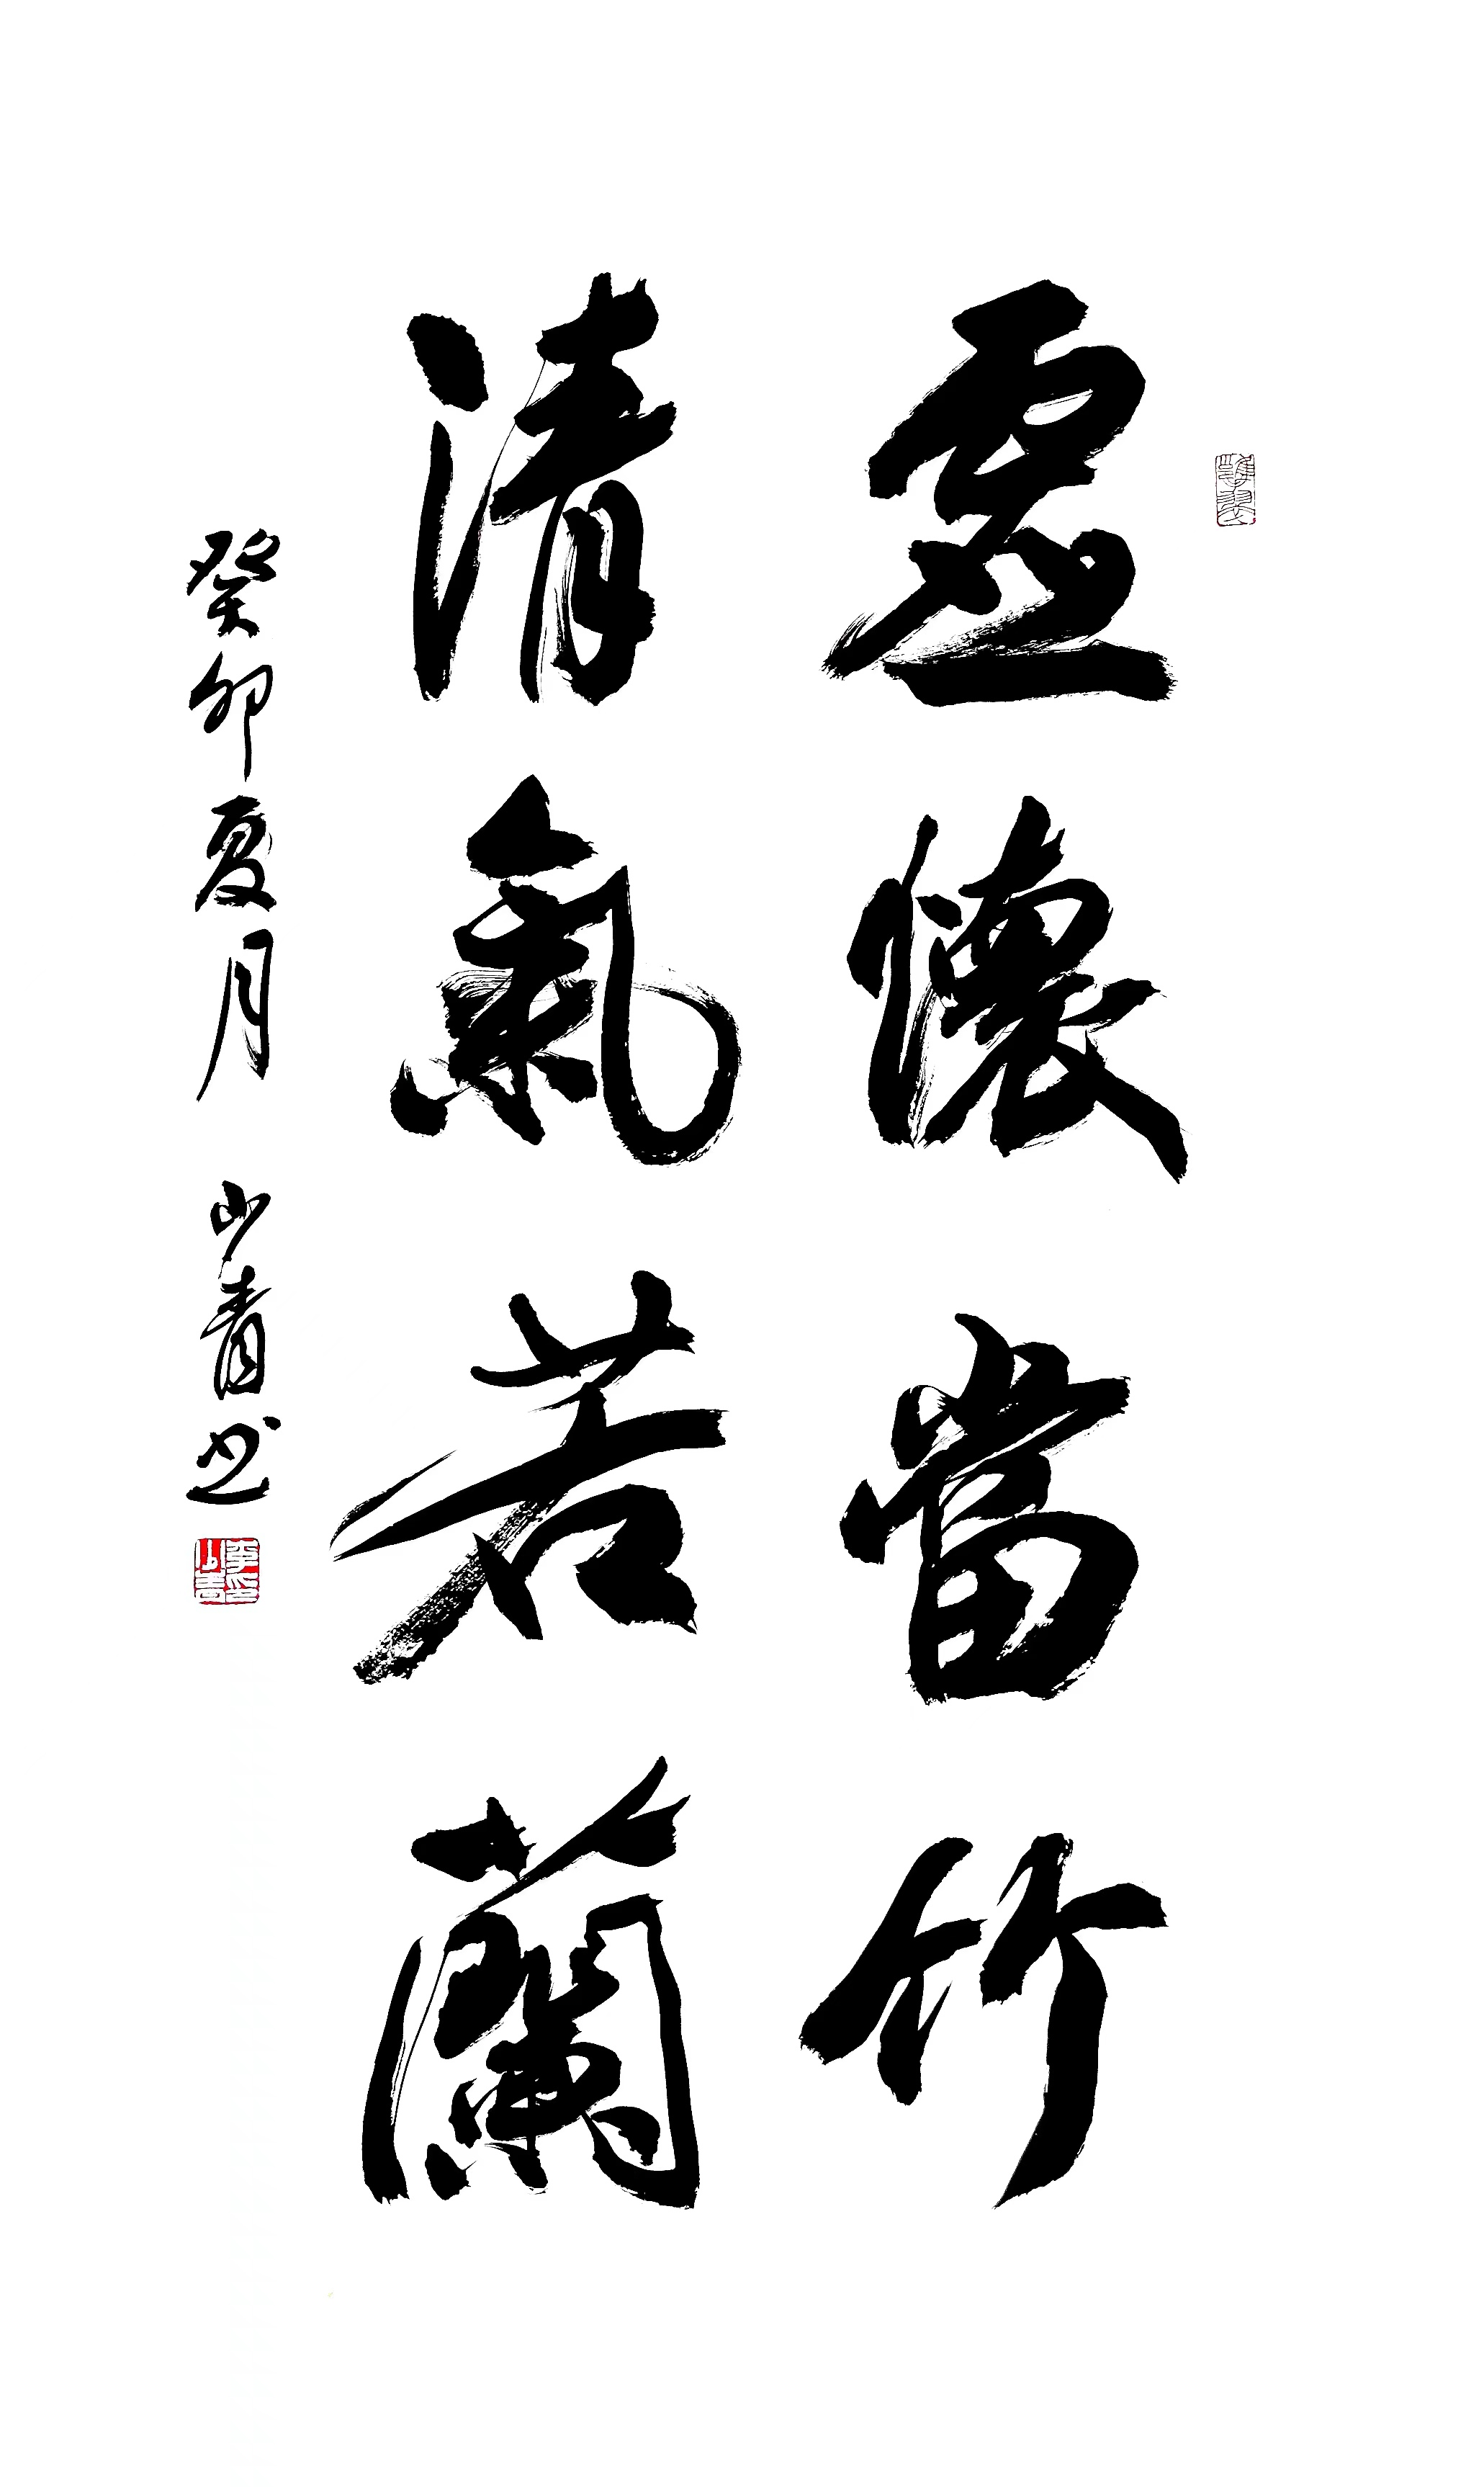 虛懷當竹
清氣若蘭
癸卯夏月 山青书